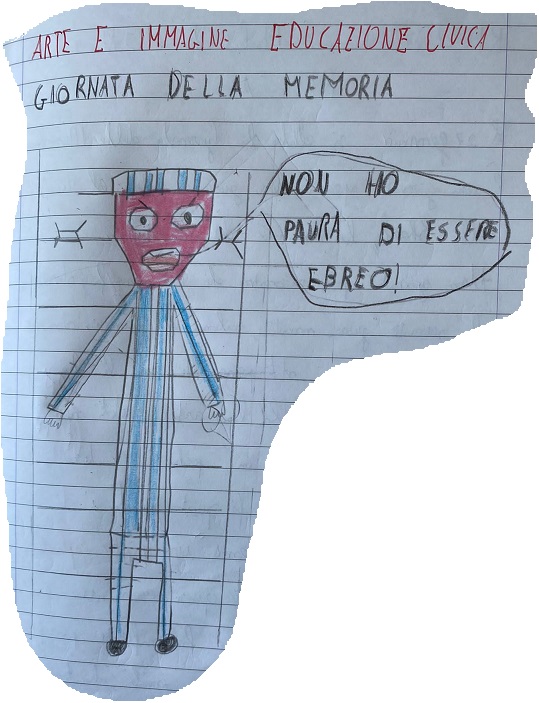 ARTE E IMMAGINE EDUCAZIONE CIVICA
GIORNATA DELLA MEMORIA
NON HO
PAURA DI ESSERE
EBREO!